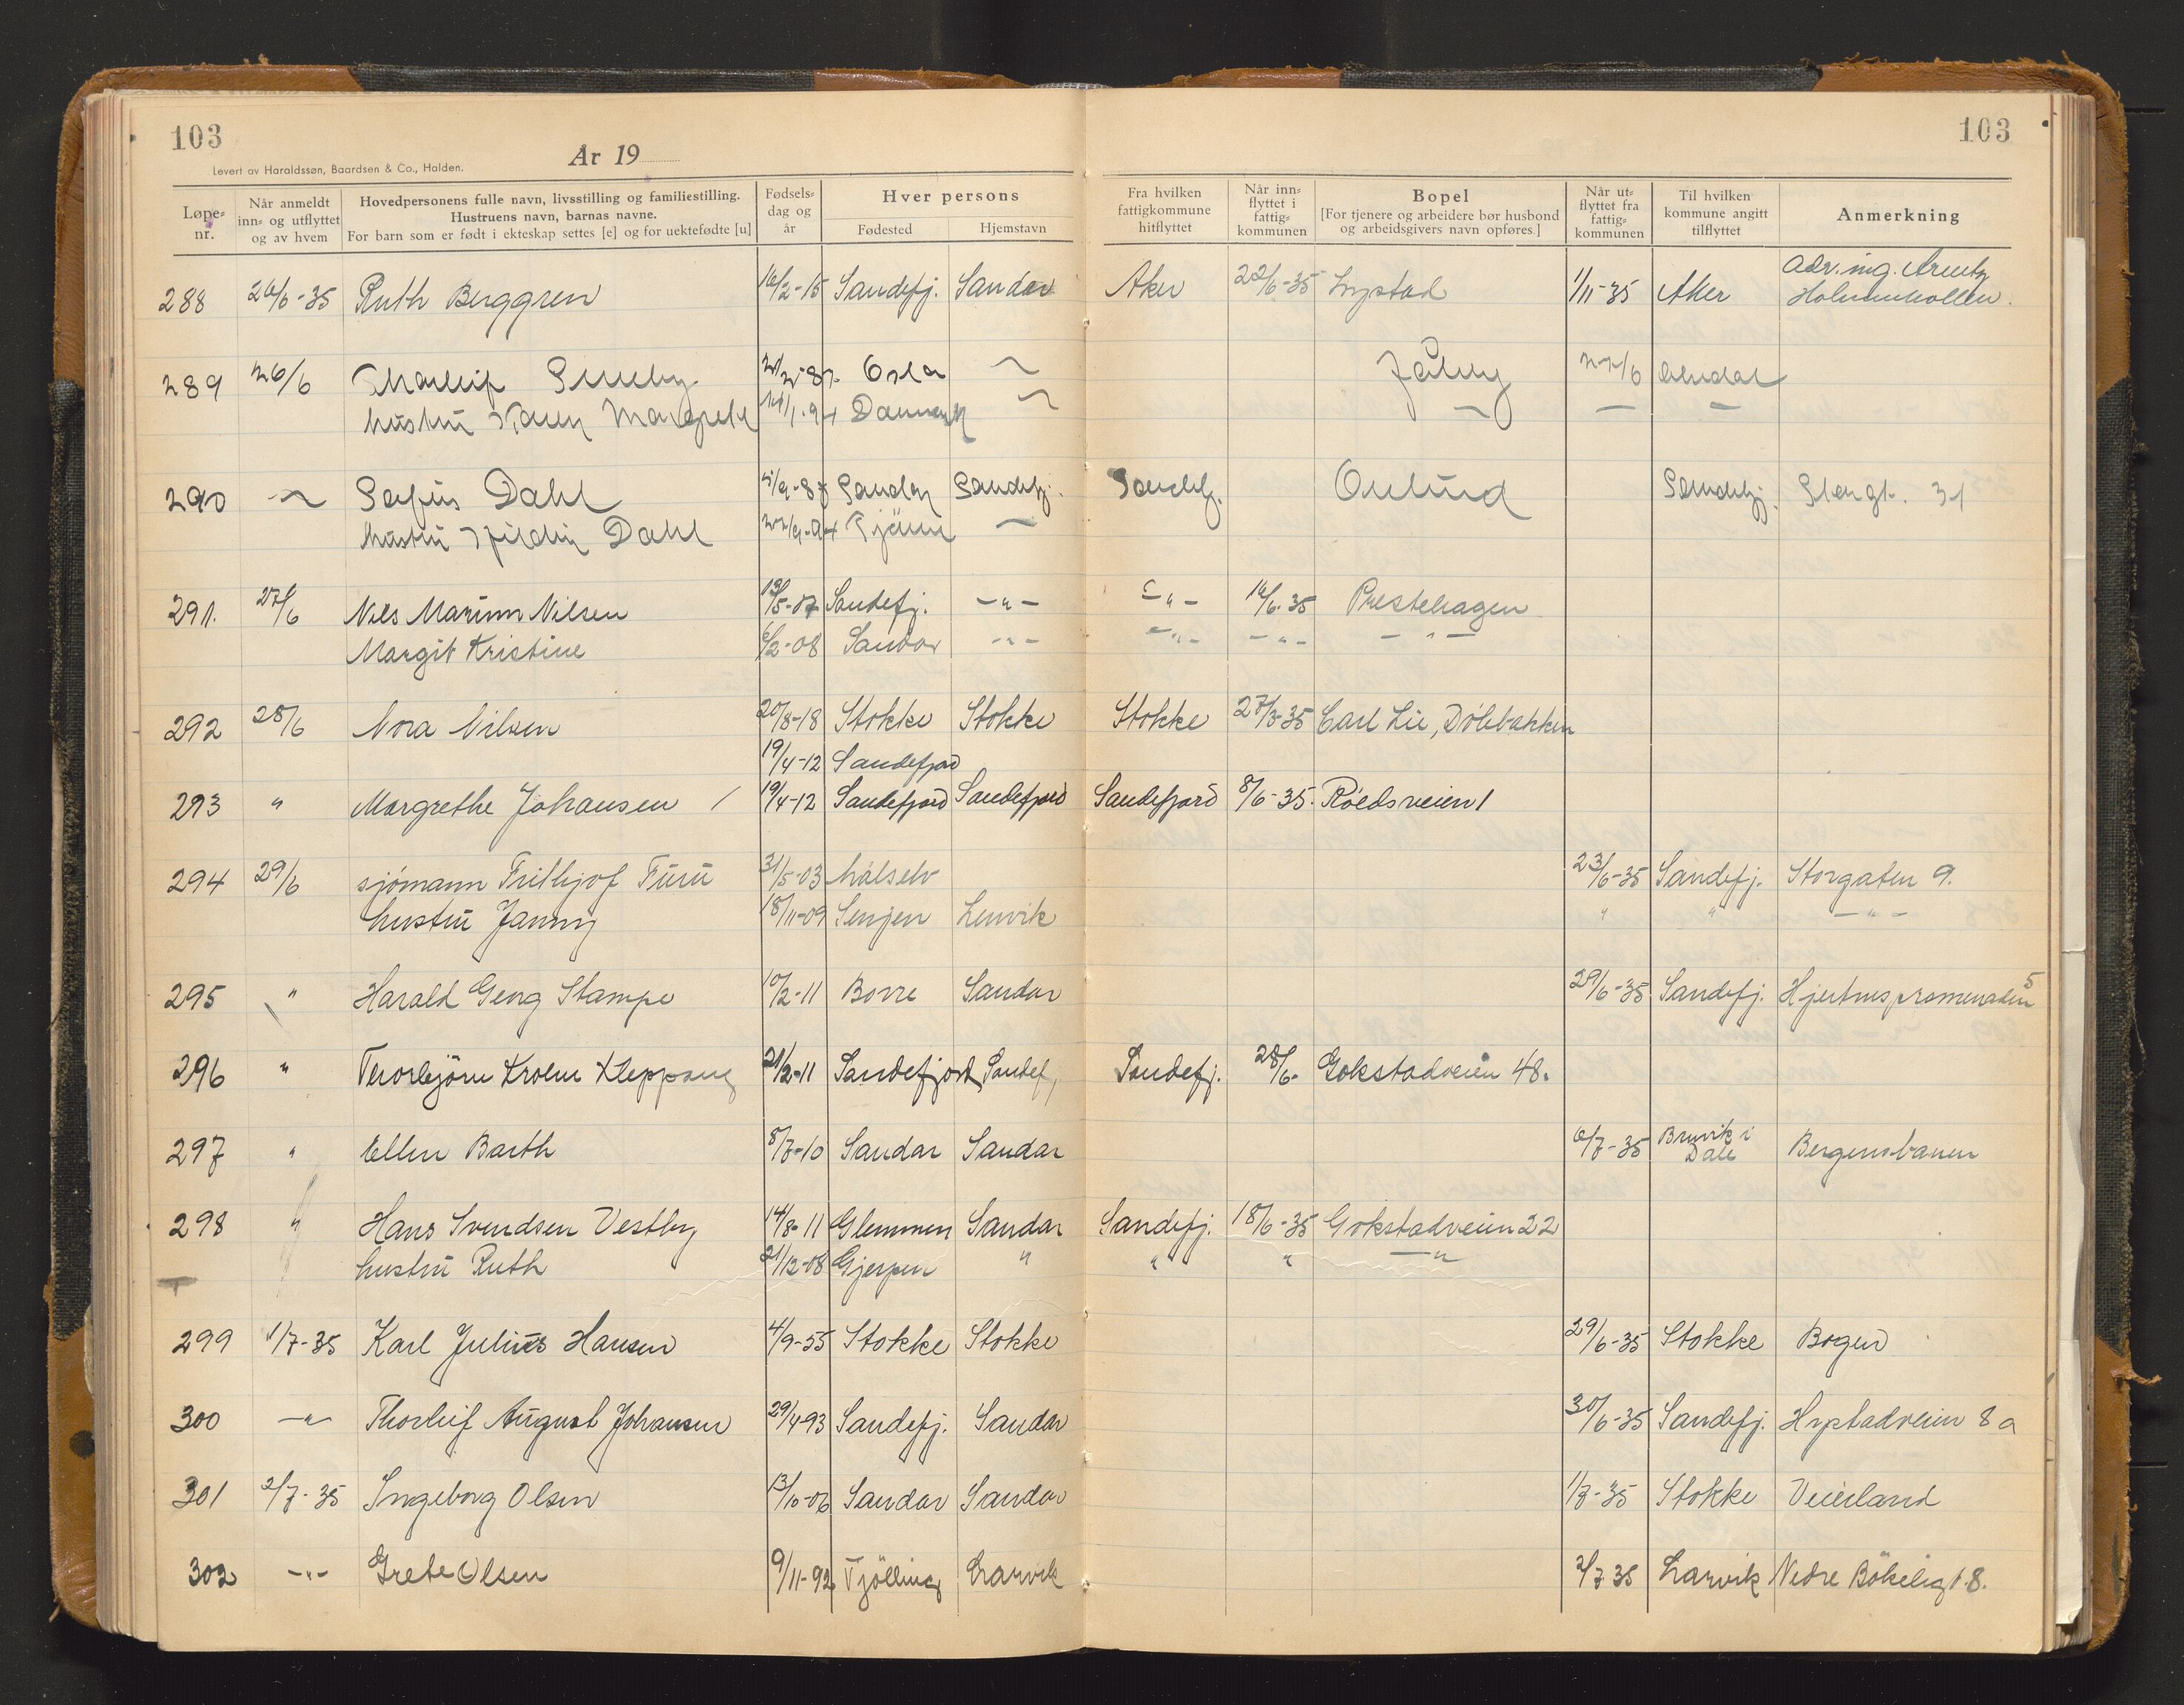 103
År 19
Levert av Haraldssøn, Baardsen & Co., Halden.
103
Løpe-nr.
Når anmeldt inn- og utflyttet og av hvem
Hovedpersonens fulle navn, livsstilling og familiestilling.
Hustruens navn, barnas navne.
For barn som er født i ekteskap settes [e] og for uektefødte [u]
Fødsels-dag og år
Hver persons
Fødested
Hjemstavn
Fra hvilken fattigkommune hitflyttet
Når inn-flyttet i fattig-kommunen
Bopel
[For tjenere og arbeidere bør husbond og arbeidsgivers navn opføres.]
Når ut-flyttet fra fattig-kommunen
Til hvilken kommune angitt tilflyttet
Anmerkning
adr. ing.
288 26/6-35 Ruth Berggren 16/2-15 Sandefj. Sandar Aker 22/6-35 1/11-35 Aker Holmenkollen.
289 26/6 Oslo 27/6
hustru Karen Margrete Danmark
290 Dahl Sandar Sandefj. Sandefj. Sandefj. 31
hustru Dahl
291. 27/6 Nils Marinus Nilsen 13/5-07 Sandefj. -"- -"- 14/6-35 Prestehagen
Margit Kristine 6/2-08 Sandar -"- -"- -"- -"-
292 28/6 Nora Nilsen 20/8-18 Stokke Stokke Stokke 27/5-35 Carl Lie, Dölebakken
19/4-12 Sandefjord
293 " Margrethe Johansen / 19/4-12 Sandefjord Sandefjord Sandefjord 8/6-35. Röedsveien 1
294 29/6 sjömann Frithjof Furu 31/5-03 Målselv 23/6-35 Sandefj. Storgaten 9.
hustru Janny 18/11-09 Senjen Lenvik " " -"-
295 " Harald Georg Stampe 10/2-11 Borre Sandar 29/6-35 Sandefj. Hjertnespromenaden 5
296 " Thorbjörn Kleppang 21/2-11 Sandefjord Sandef, Sandefj. 28/6- Gokstadveien 48.
297 " Ellen Barth 8/7-10 Sandar Sandar 6/7-35 Bruvik i Dale Bergensbanen
298 " Hans Svendsen Vestby 14/8-11 Glemmen Sandar Sandefj. 18/6-35 Gokstadveien 22
hustru Ruth 21/12-08 Gjerpen " " " -"-
299 1/7-35 Karl Julius Hansen 4/9-55 Stokke Stokke 29/6-35 Stokke Bogen
300 -"- Thorleif August Johansen 29/4-93 Sandefj. Sandar 30/6-35 Sandefj. Hystadveien 8 a
301 2/7-35 Ingeborg Olsen 13/10-06 Sandar Sandar 1/7-35 Stokke Veierland
302 -"- Grete Olsen 9/11-92 Tjölling Larvik 2/7 35 Larvik Nedre Bökeligt. 8.